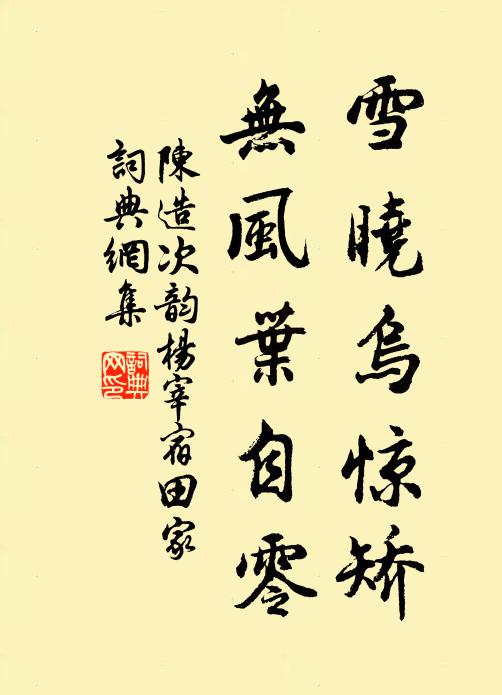 雪曉烏惊矫
無風葉自零
陳造次韵楊宰宿田家
詞典網集
詞典
网印